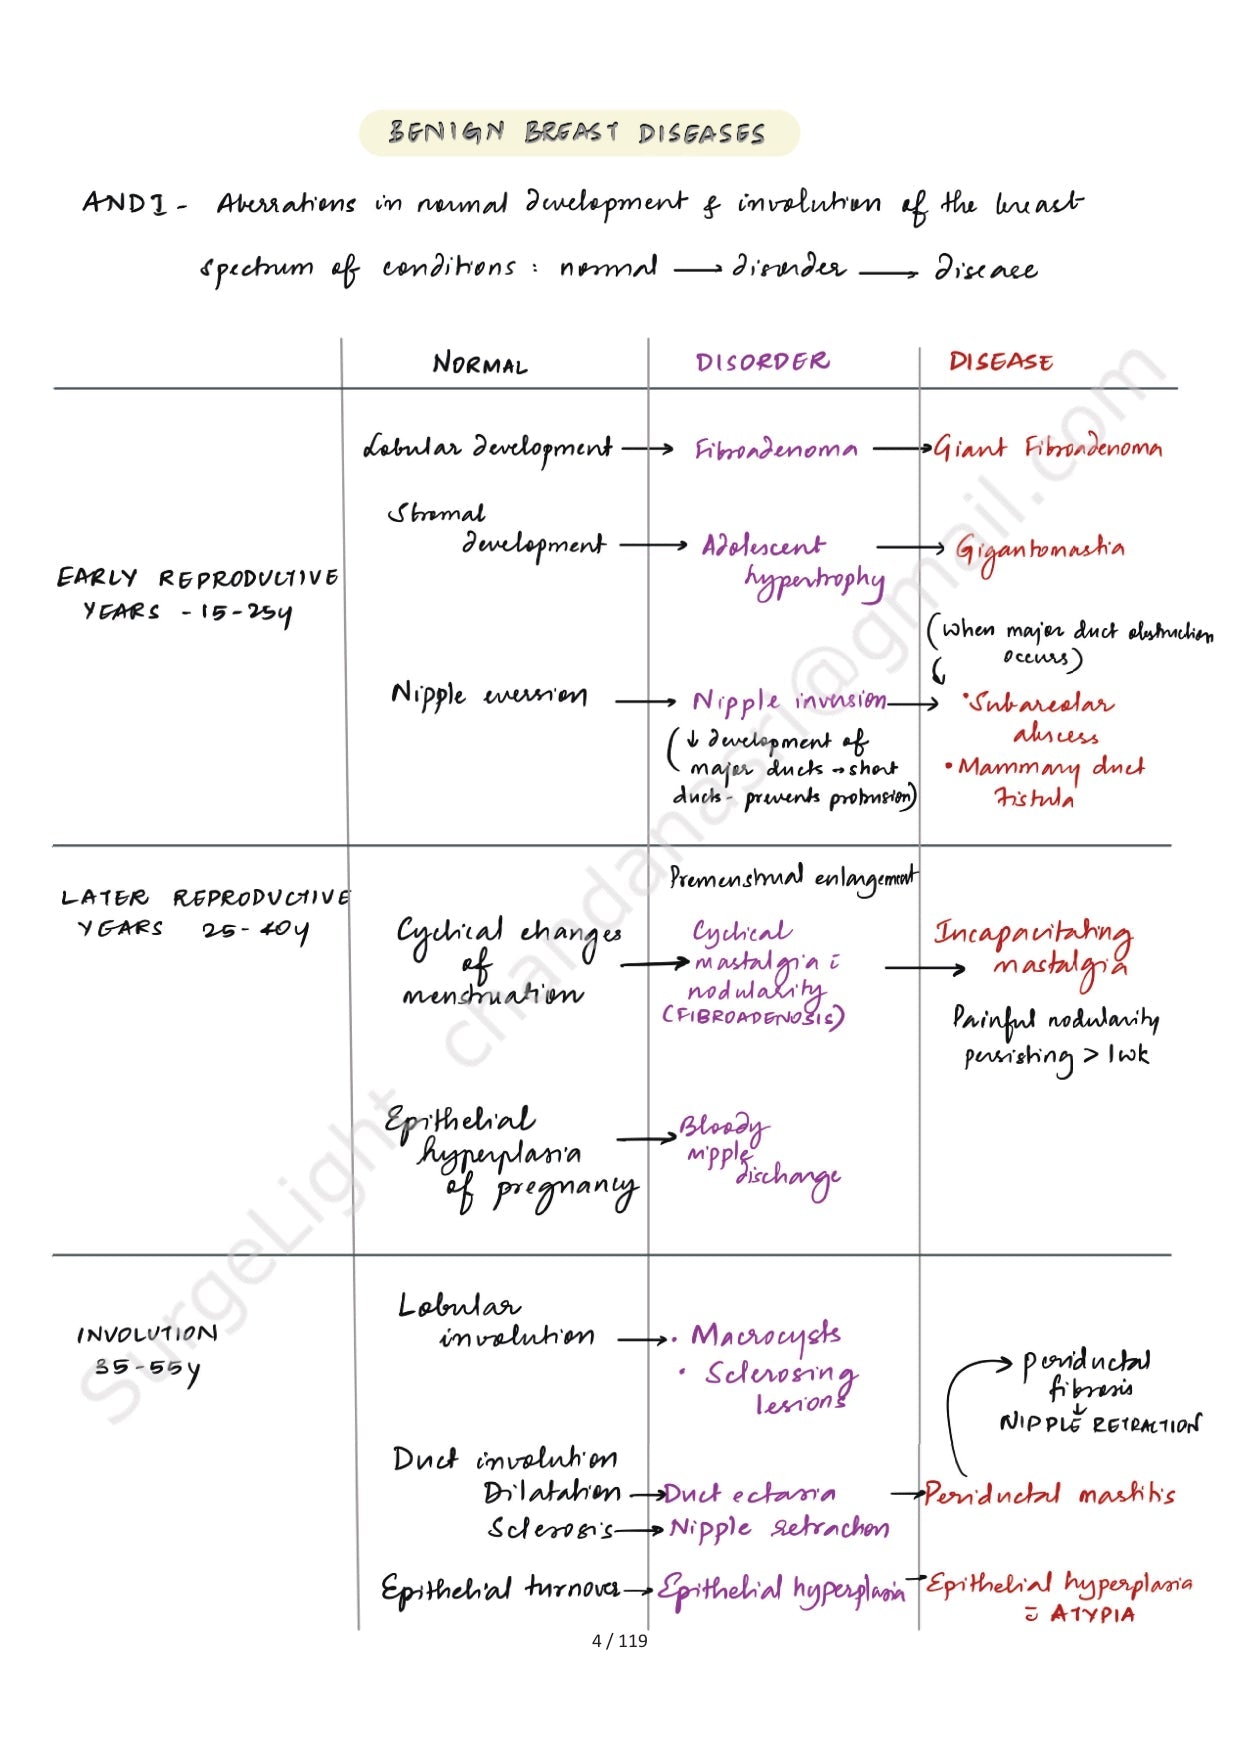 BENIGN BREAST DISEASES
ANDI - Aberrations in normal development & involution of the breast
spectrum of conditions : normal → disorder → disease
NORMAL DISORDER DISEASE
EARLY REPRODUCTIVE
YEARS - 15-25y
Lobular development → Fibroadenoma → Giant Fibroadenoma
Stromal
development → Adolescent
hypertrophy → Gigantomastia
Nipple eversion → Nipple inversion →
(↓ development of
major ducts → short
ducts - prevents protrusion)
(when major duct obstruction
occurs)
• Subareolar
abscess
• Mammary duct
fistula
LATER REPRODUCTIVE
YEARS 25-40y
Cyclical changes
of
menstruation →
Premenstrual enlargement
Cyclical
mastalgia c̄
nodularity
(FIBROADENOSIS) →
Incapacitating
mastalgia
Painful nodularity
persisting > 1wk
Epithelial
hyperplasia
of pregnancy →
Bloody
nipple
discharge
INVOLUTION
35-55y
Lobular
involution →
• Macrocysts
• Sclerosing
lesions
Duct involution
Dilatation → Duct ectasia → Periductal mastitis
→ periductal
fibrosis
↓
NIPPLE RETRACTION
Sclerosis → Nipple retraction
Epithelial turnover → Epithelial hyperplasia → Epithelial hyperplasia
c̄ ATYPIA
4 / 119
SurgeLight chandanasri@gmail.com